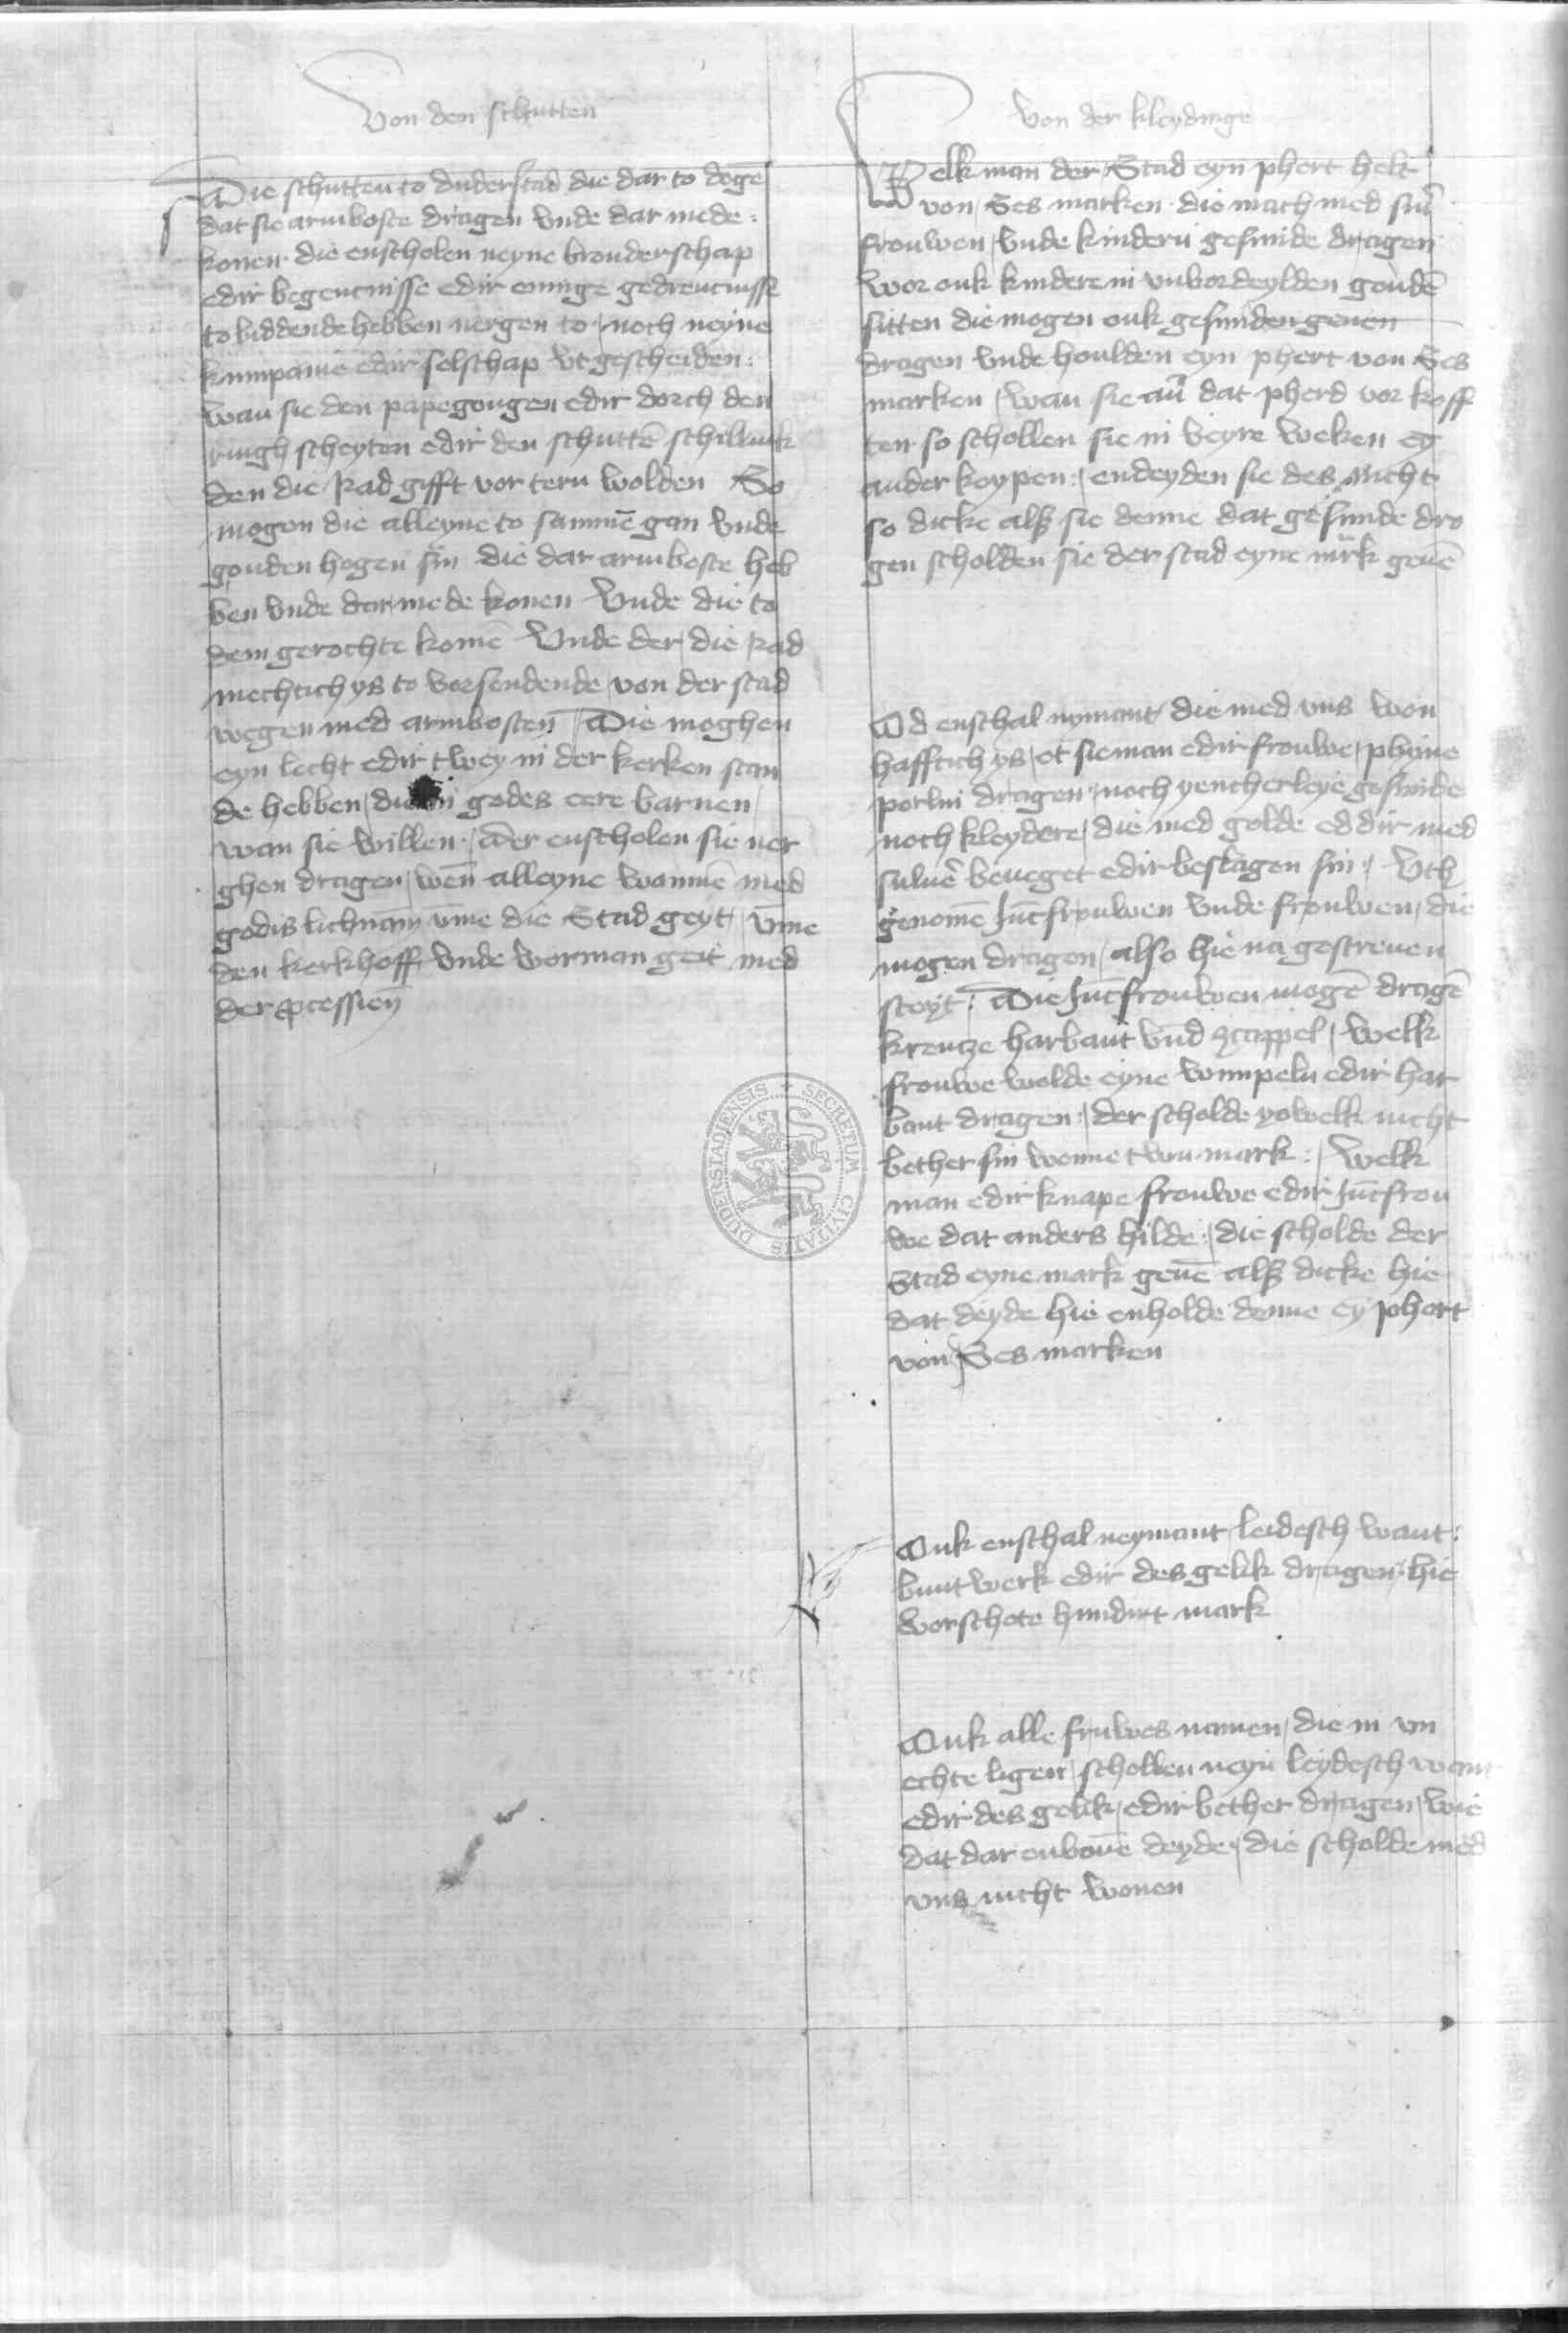 Von den schutten
Die schutten to duderstad die dar to dogē
dat sie armboste dragen vnde dar mede
konen die enscholen neyne brouderschap
edir begencnisse edir eninge gedrencnisse
to biddende hebben nergen to noch neyne
kumpanie edir selschap vt gescheiden
wan sie den papegougen edir dorch den
ringh scheyten edir den schuttē schillink
den die Rad gifft vor tern wolden So
mogen die alleyne to sammē gan vnde
gouden hogen sin die dar armboste heb
ben vnde dar mede konen Vnde die to
dem gerochte komē Vnde der die Rad
mechtich ys to vorsendende von der stad
wegen med armbosten Die moghen
eyn lecht edir twey in der kerken stan
de hebben die in godes eere barnen
wan sie willen Der enscholen sie ner
ghen dragen wen̄ alleyne wanme med
godis lichnam vm̄e die Stad geyt vm̄e
den kerkhoff vnde worman geit med
der ꝓcessien
Von der kleydinge
Welk man der Stad eyn phert helt
von Ses marken die mach med sin̄
frouwen vnde kindern gesmide dragen
wor ouk kindere in vnvordeylden goudē
sitten die mogen ouk gesmiden geuen
dragen vnde houlden eyn phert von Ses
marken wan sie au᷑ dat pherd vor koff
ten so schollen sie in veyre weken ey
ander keypen endeyden sie des nicht
so dicke alß sie denne dat gesmide dro
gen scholden sie der stad eyne mrk geuē
Od enschal nymant die med vns won
hafftich ys et sie man edir frouwe phyne
perln dragen noch yencherleye gesmide
noch kleydere die med golde eddir med
suluē beueget edir beslagen sin Vth
genomē Juncfrouwen vnde frouwen die
mogen dragen also hie na gescreuen
steyt Die Juncfrouwen mogē dragē
krentze harbant vnd schappel welk
frouwe wolde eyne wimpeln edir har
bant dragen der scholde yowelk nicht
bether sin wenne twu mark Welk
man edir knape frouwe edir Juncfrou
we dat anders hilde die scholde der
Stad eyne mark geuē alß dicke hie
dat deyde hie enholde denne ey phert
von Ses marken
Ouk enschal neymant leidesch want
buntwerk edir des gelik dragen hie
vorschote hundirt mark
Ouk alle fruwes namen die in vn
echte ligen schollen neyn leydesch want
edir des gelik edir bether dragen wie
dat dar enbouē deyde die scholde med
vns nicht wonen
SECRETUM CIVITATIS DUDERSTADIENSIS